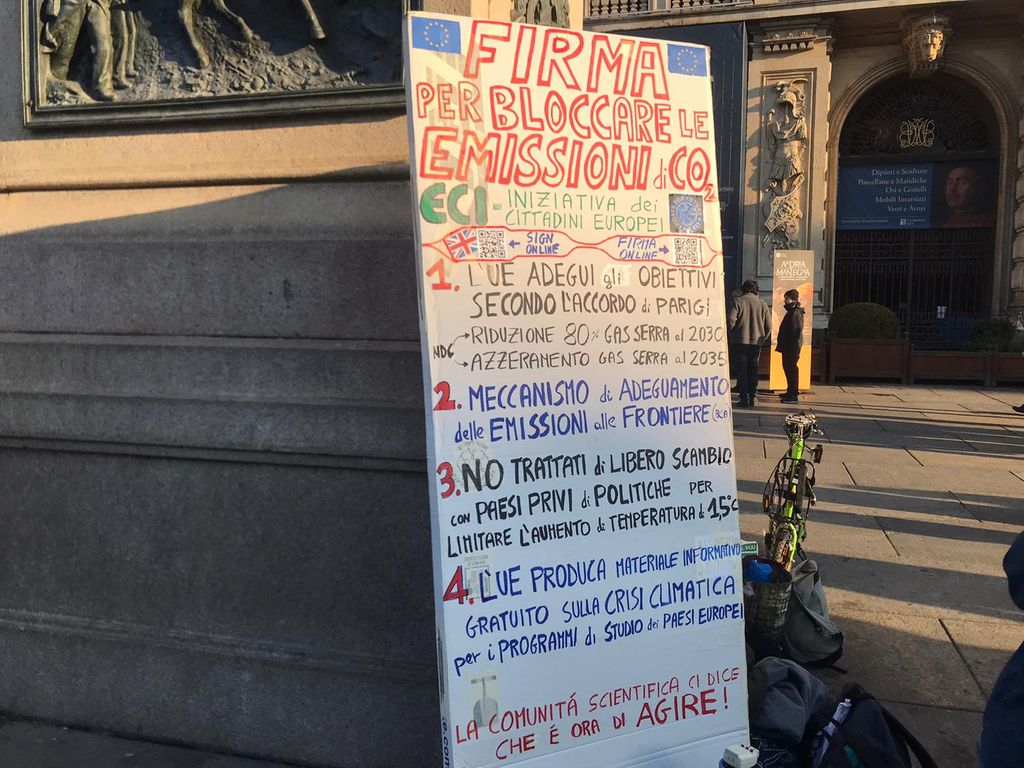 FIRMA
PER BLOCCARE LE
EMISSIONI di CO2
ECI - INIZIATIVA dei
CITTADINI EUROPEI
SIGN
ONLINE
FIRMA
ONLINE
1. L'UE ADEGUI gli OBIETTIVI
SECONDO L'ACCORDO di PARIGI
NDC
RIDUZIONE 80% GAS SERRA al 2030
AZZERAMENTO GAS SERRA al 2035
2. MECCANISMO di ADEGUAMENTO
delle EMISSIONI alle FRONTIERE (BCA)
3. NO TRATTATI di LIBERO SCAMBIO
con PAESI PRIVI di POLITICHE PER
LIMITARE L'AUMENTO di TEMPERATURA a 1,5°C
4. L'UE PRODUCA MATERIALE INFORMATIVO
GRATUITO SULLA CRISI CLIMATICA
per i PROGRAMMI di STUDIO dei PAESI EUROPEI
LA COMUNITÁ SCIENTIFICA CI DICE
CHE É ORA DI AGIRE!
Dipinti e Sculture
Porcellane e Maioliche
Ori e Gioielli
Mobili Intarsiati
Vetri e Avori
ANDREA
MANTEGNA